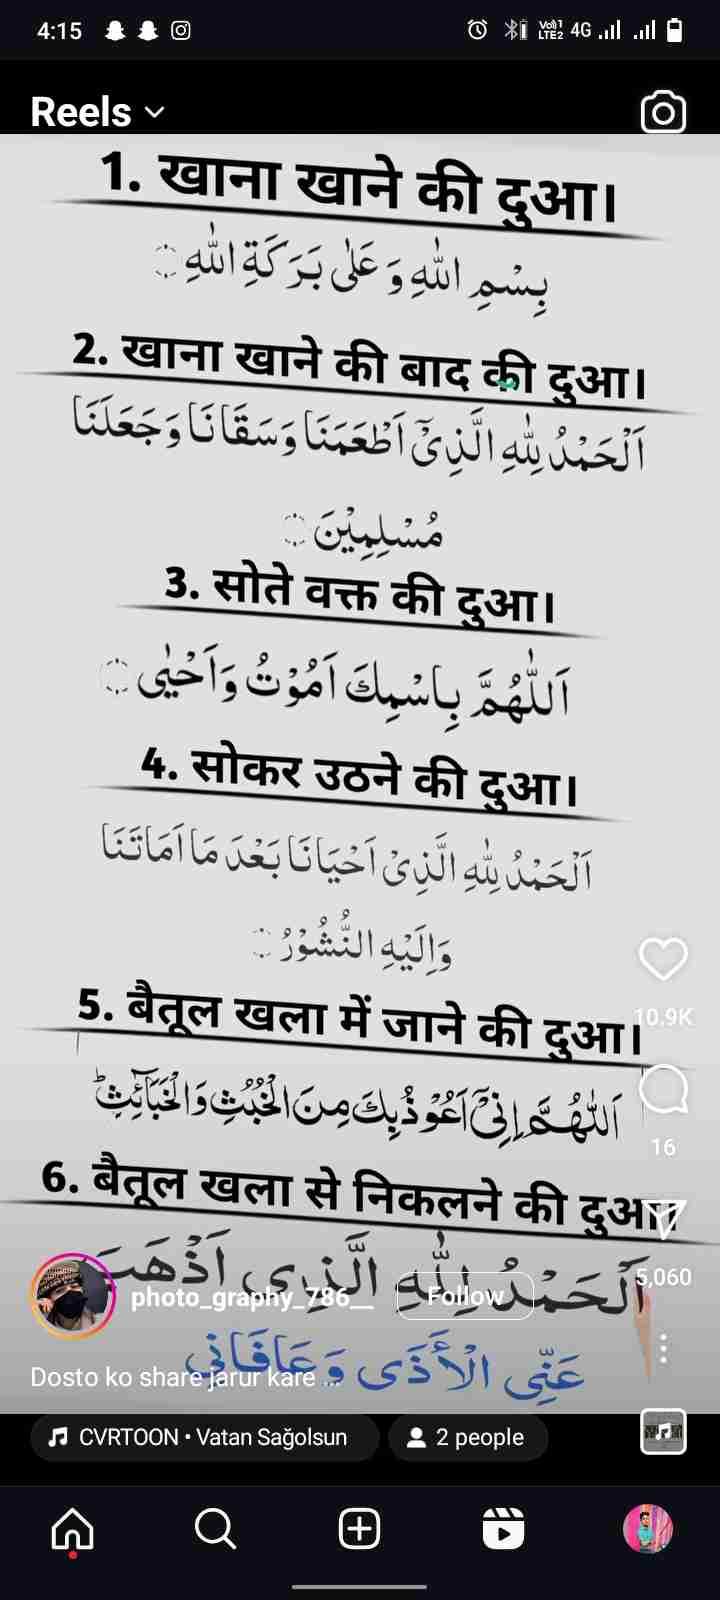 4:15
Vol1 LTE2 4G
Reels
1. खाना खाने की दुआ।
بِسْمِ اللّٰهِ وَعَلٰى بَرَكَةِ اللّٰهِ
2. खाना खाने की बाद की दुआ।
اَلْحَمْدُ لِلّٰهِ الَّذِىْٓ اَطْعَمَنَا وَسَقَانَا وَجَعَلَنَا
مُسْلِمِيْنَ
3. सोते वक्त की दुआ।
اَللّٰهُمَّ بِاسْمِكَ اَمُوْتُ وَاَحْيٰى
4. सोकर उठने की दुआ।
اَلْحَمْدُ لِلّٰهِ الَّذِىْ اَحْيَانَا بَعْدَ مَا اَمَاتَنَا
وَاِلَيْهِ النُّشُوْرُ
5. बैतूल खला में जाने की दुआ।
اَللّٰهُمَّ اِنِّىْٓ اَعُوْذُ بِكَ مِنَ الْخُبُثِ وَالْخَبَآئِثِ
6. बैतूल खला से निकलने की दुआ।
اَلْحَمْدُ لِلّٰهِ الَّذِى اَذْهَبَ
عَنِّى الْأَذَى وَعَافَانِى
10.9K
16
5,060
photo_graphy_786__
Follow
Dosto ko share jarur kare ...
CVRTOON • Vatan Sağolsun
2 people